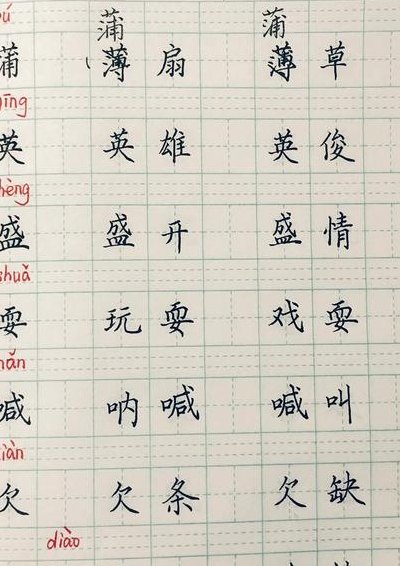 蒲 蒲
蒲 薄扇 薄草
英 英雄 英俊
盛 盛开 盛情
shuǎ
耍 玩耍 戏耍
喊 呐喊 喊叫
欠 欠条 欠缺
diào